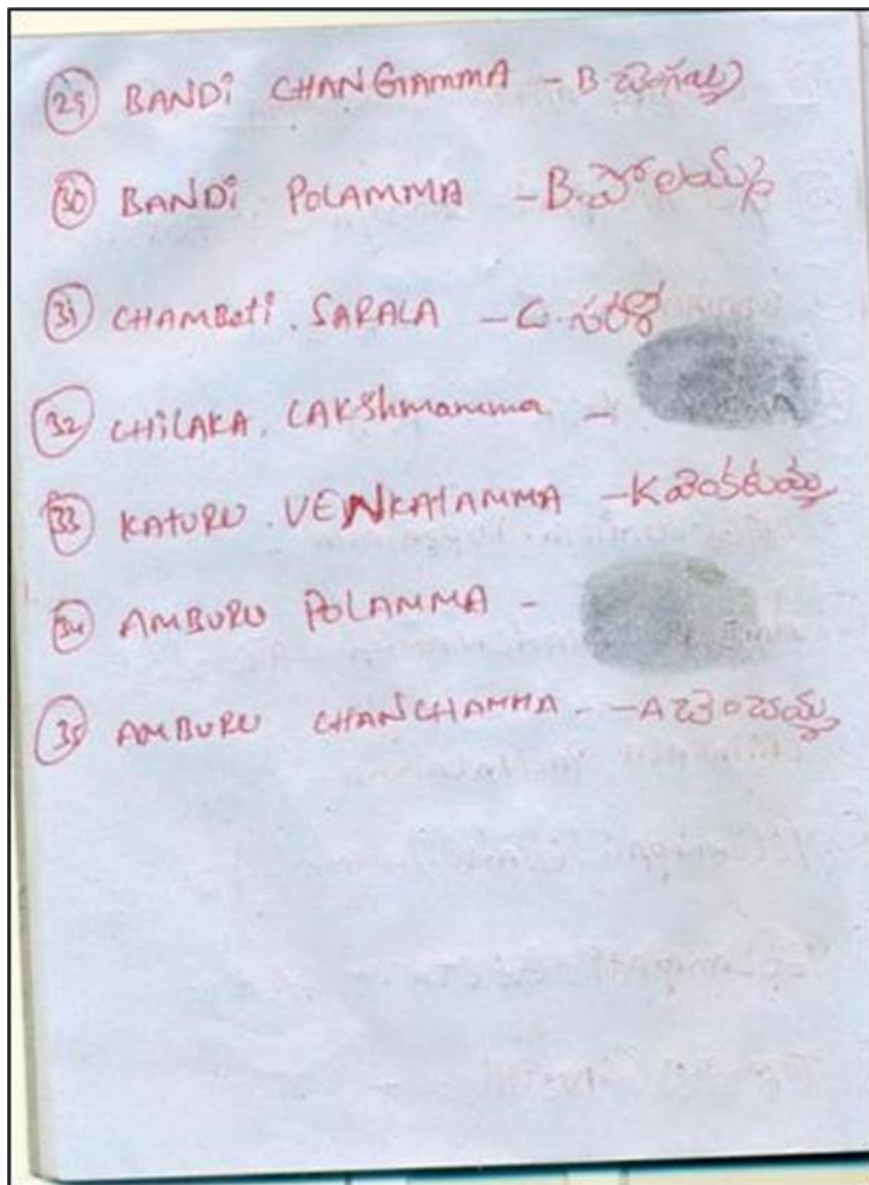 29 BANDi CHANGAMMA - B చెంగమ్మ
30 BANDi POLAMMA - B. పోలమ్మ
31 CHAMBeti. SARALA - C. సరళ
32 CHiLAKA. LAKShmamma -
33 KATURU. VENKATAMMA - K వెంకటమ్మ
34 AMBURU POLAMMA -
35 AMBURU CHANCHAMMA - - A చెంచమ్మ